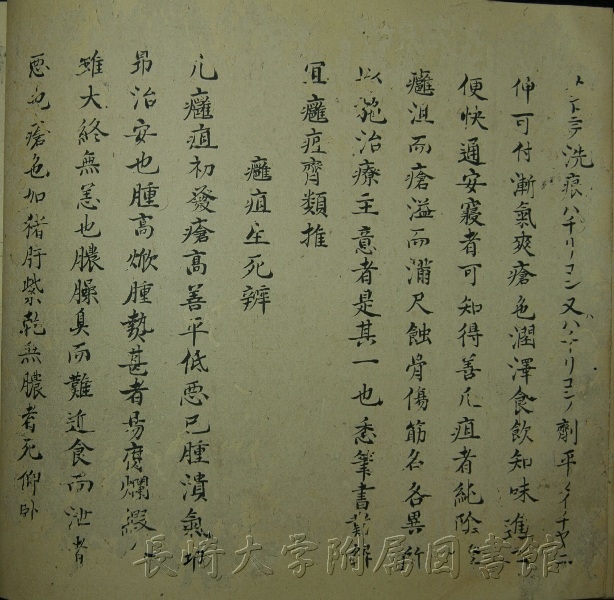 洗痕ハチリーコン又ハチリコンノ劑平
伸可付漸氣爽瘡色潤澤食飲知味進
便快通安寢者可知得善凡疽者純陰
癰沮而瘡溢而满尺蝕骨傷筋名各異所
以施治療主意者是其一也悉筆書難解
宜癰疽齊類推
癰疽生死辨
凡癰疽初發瘡高善平低悪已腫潰氣
昻治安也腫高焮腫熱甚者易腐爛
雖大終無恙也膿臊臭而難近食而泄者
悪也瘡色如猪肝紫乾無膿者死仰卧
長崎大学附属図書館